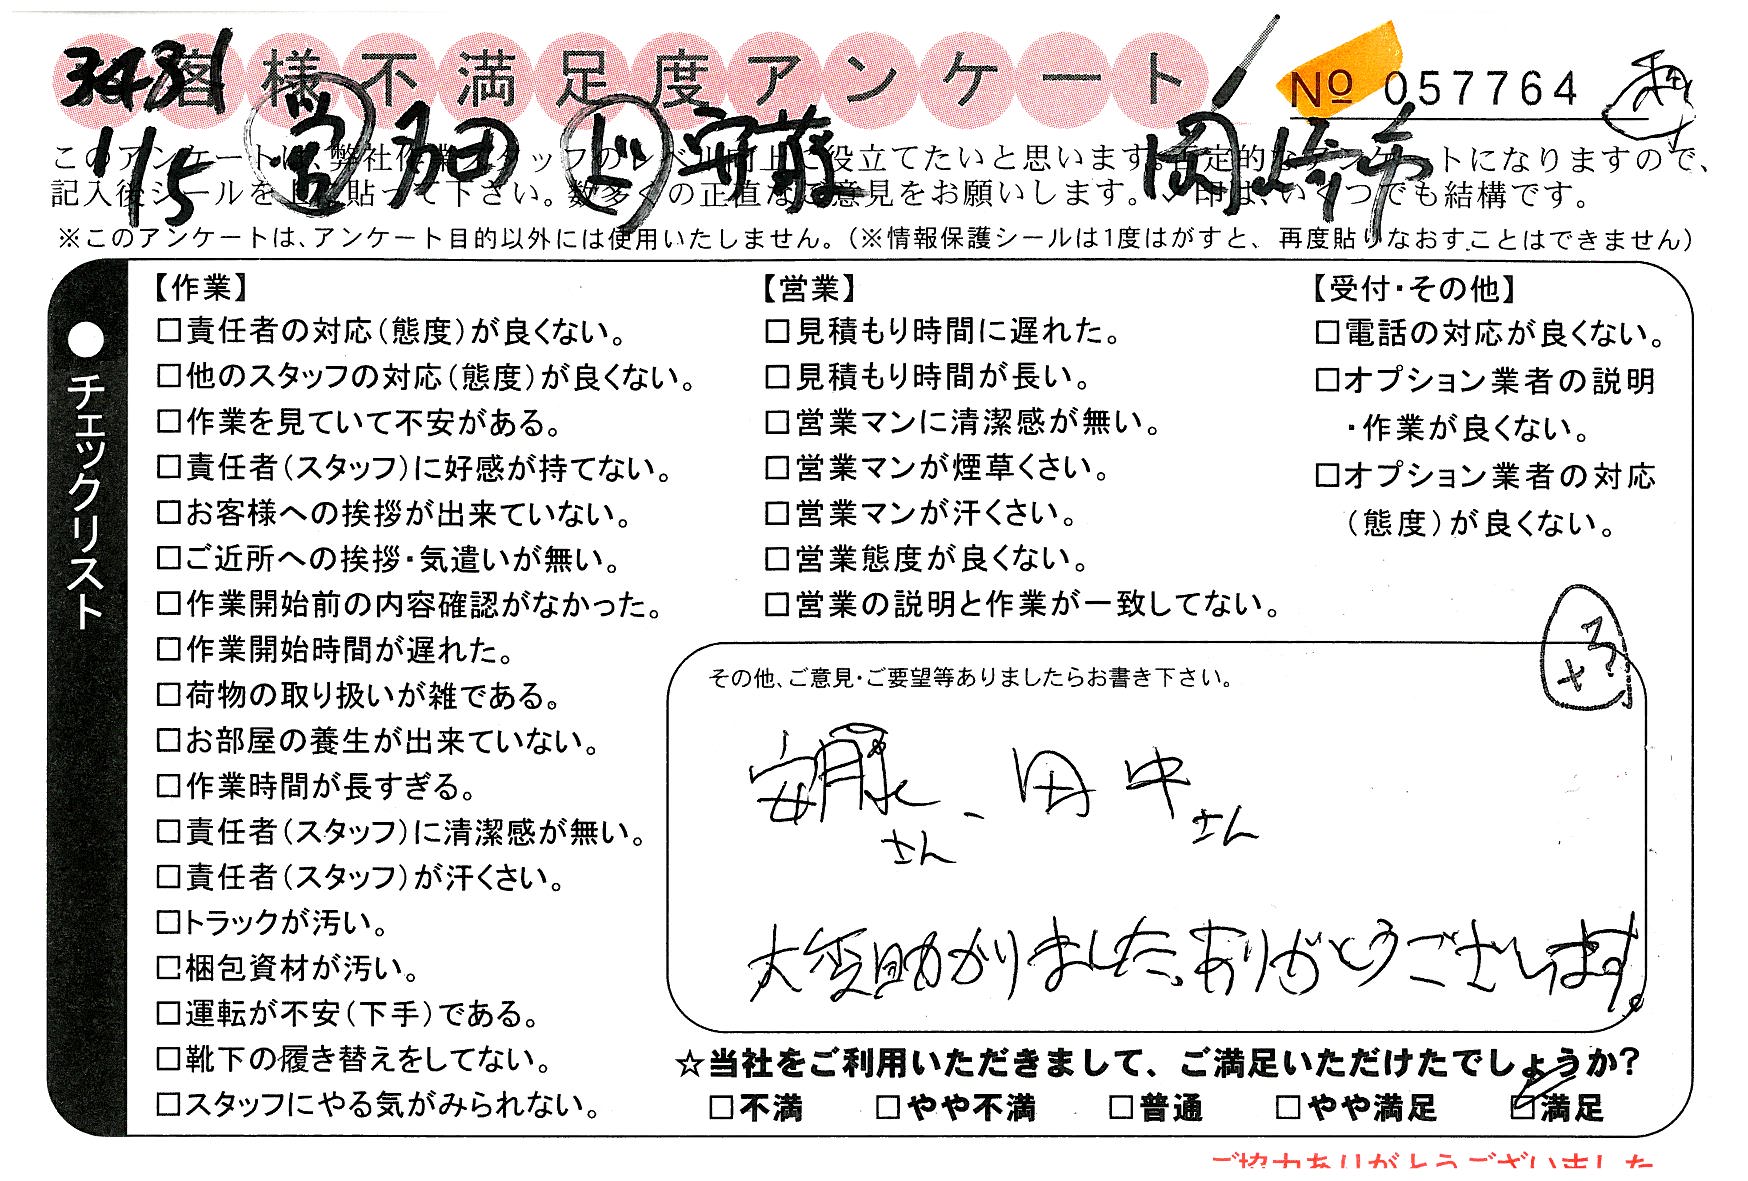 お客様不満足度アンケート
3431
№ 057764
1/5 営 多田 ド 安藤 岡崎市
このアンケートは、弊社作業スタッフのレベル向上に役立てたいと思います。否定的なアンケートになりますので、
記入後シールを上に貼って下さい。数多くの正直なご意見をお願いします。✓印は、いくつでも結構です。
※このアンケートは、アンケート目的以外には使用いたしません。（※情報保護シールは1度はがすと、再度貼りなおすことはできません）
●チェックリスト
【作業】
□責任者の対応（態度）が良くない。
□他のスタッフの対応（態度）が良くない。
□作業を見ていて不安がある。
□責任者（スタッフ）に好感が持てない。
□お客様への挨拶が出来ていない。
□ご近所への挨拶・気遣いが無い。
□作業開始前の内容確認がなかった。
□作業開始時間が遅れた。
□荷物の取り扱いが雑である。
□お部屋の養生が出来ていない。
□作業時間が長すぎる。
□責任者（スタッフ）に清潔感が無い。
□責任者（スタッフ）が汗くさい。
□トラックが汚い。
□梱包資材が汚い。
□運転が不安（下手）である。
□靴下の履き替えをしてない。
□スタッフにやる気がみられない。
【営業】
□見積もり時間に遅れた。
□見積もり時間が長い。
□営業マンに清潔感が無い。
□営業マンが煙草くさい。
□営業マンが汗くさい。
□営業態度が良くない。
□営業の説明と作業が一致してない。
【受付・その他】
□電話の対応が良くない。
□オプション業者の説明
・作業が良くない。
□オプション業者の対応
（態度）が良くない。
その他、ご意見・ご要望等ありましたらお書き下さい。
安藤さん、田中さん
大変助かりました、ありがとうございます。
☆当社をご利用いただきまして、ご満足いただけたでしょうか？
□不満 □やや不満 □普通 □やや満足 ☑満足
ご協力ありがとうございました